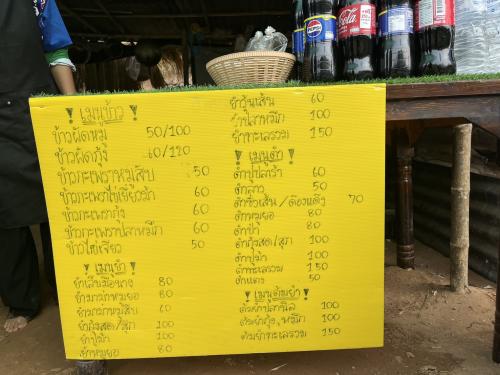 เมนูข้าว
ข้าวผัดหมู 50/100
ข้าวผัดกุ้ง 60/120
ข้าวกะเพราหมูสับ 50
ข้าวกะเพราไข่เยี่ยวม้า 60
ข้าวกะเพรากุ้ง 60
ข้าวกะเพราปลาหมึก 60
ข้าวไข่เจียว 50
เมนูยำ
ยำเล็บมือนาง 80
ยำมาม่าหมูยอ 80
ยำมาม่าหมูสับ 60
ยำกุ้งสด/สุก 100
ยำปูม้า 100
ยำหมูยอ 80
ยำวุ้นเส้น 60
ยำปลาหมึก 100
ยำทะเลรวม 150
เมนูตำ
ตำปูปลาร้า 60
ตำลาว 50
ตำซั่วเส้น/ด๊องแด๊ง 70
ตำหมูยอ 80
ตำป่า 80
ตำกุ้งสด/สุก 100
ตำปูม้า 100
ตำทะเลรวม 150
ตำแตง 50
เมนูต้มยำ
ต้มยำปลานิล 100
ต้มยำกุ้ง, หมึก 100
ต้มยำทะเลรวม 150
pepsi
Coca-Cola
pepsi